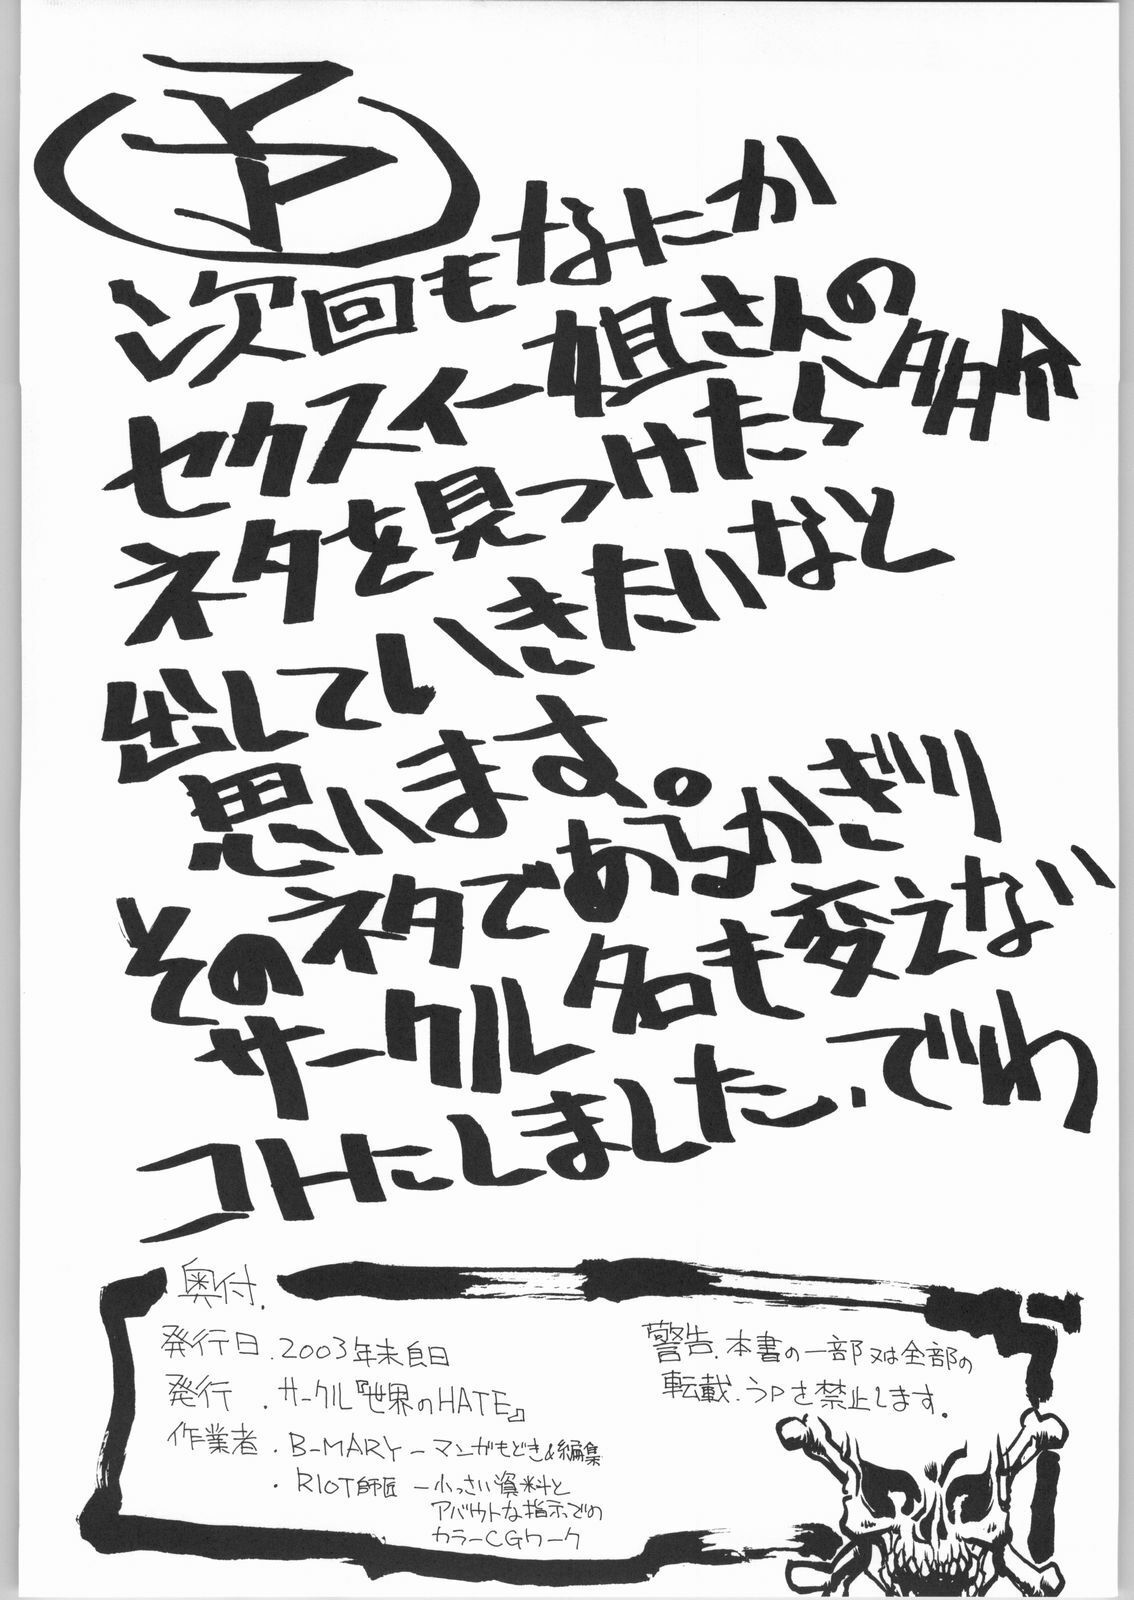 予
次回もなにか
セクスィー姐さんの多分
ネタを見つけたら
出していきたいなと
思います。
そのネタであるかぎり
サークル名も変えない
コトにしました、でわ
奥付.
発行日.2003年末良日
発行.サークル『世界のHATE』
作業者.B-MARY-マンガもどき&編集
.RIOT師匠-小っさい資料と
アバウトな指示での
カラーCGワーク
警告.本書の一部又は全部の
転載.うpを禁止します.